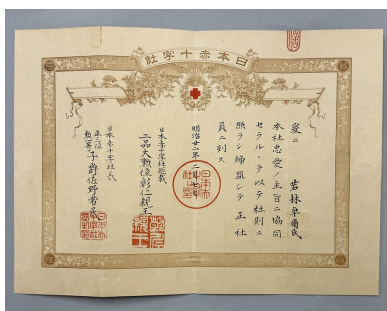 日本赤十字社
若林卓爾氏
爰ニ
本社忠愛ノ主旨ニ協同
セラルヽヲ以テ社則ニ
照ラシ締盟シテ正社
員ニ列ス
明治廿二年二月
日本赤十字社総裁
二品大勲位彰仁親王
日本赤十字社長
子爵佐野常民